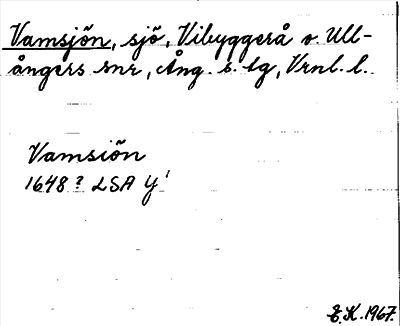 Vamsjön, sjö, Vibyggerå o. Ull-
ångers snr, Ång. s. tg, Vrnl. l.
Vamsiön
1648? LSA Y¹
E.K. 1967.